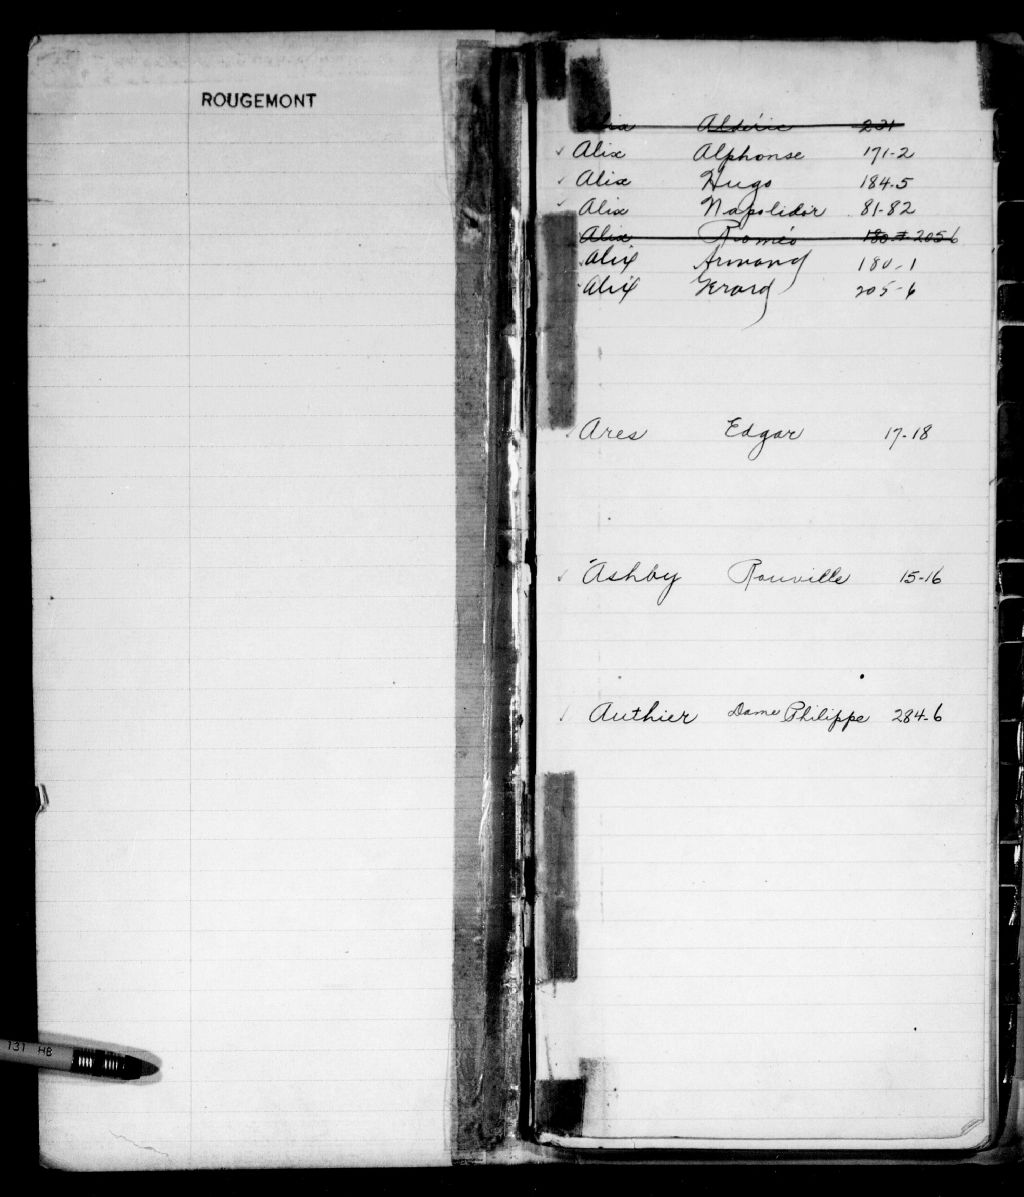 ROUGEMONT
Alix Aldéric 231
Alix Alphonse 171-2
Alix Hugo 184-5
Alix Napolidor 81-82
Alix Roméo 205-6
Alix Armand 180-1
Alix Gerard 205-6
Ares Edgar 17-18
Ashby Rouville 15-16
Authier Dame Philippe 284-6
131 HB